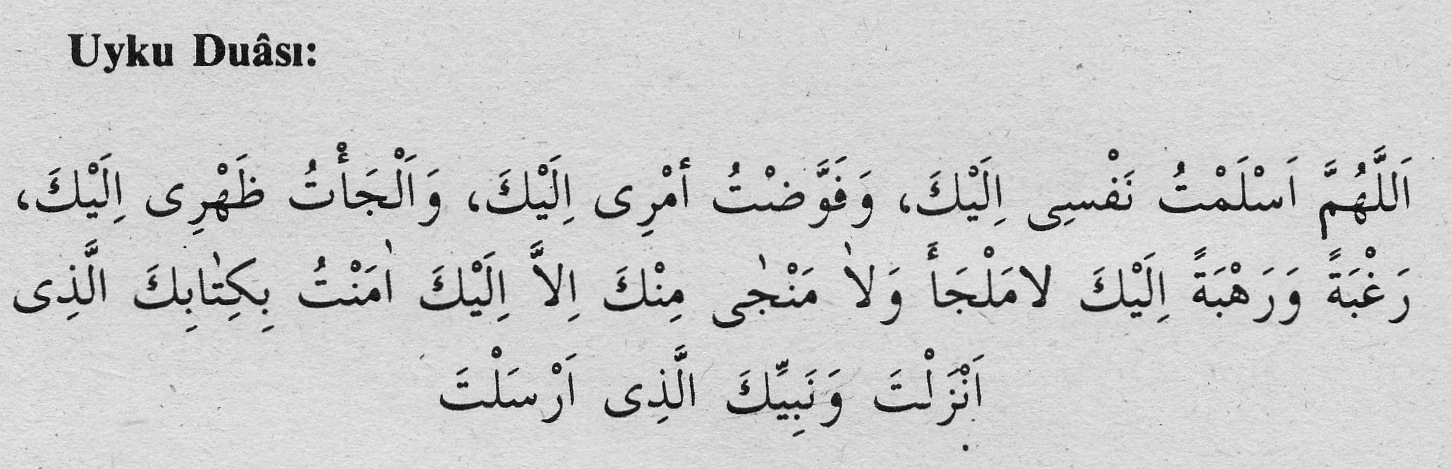 Uyku Duâsı:
اَللَّهُمَّ اَسْلَمْتُ نَفْسِى اِلَيْكَ، وَفَوَّضْتُ أمْرِى اِلَيْكَ، وَاَلْجَأْتُ ظَهْرِى اِلَيْكَ،
رَغْبَةً وَرَهْبَةً اِلَيْكَ لامَلْجَأَ وَلاٰ مَنْجٰى مِنْكَ اِلاَّ اِلَيْكَ اٰمَنْتُ بِكِتٰابِكَ الَّذِى
اَنْزَلْتَ وَنَبِيِّكَ الَّذِى اَرْسَلْتَ